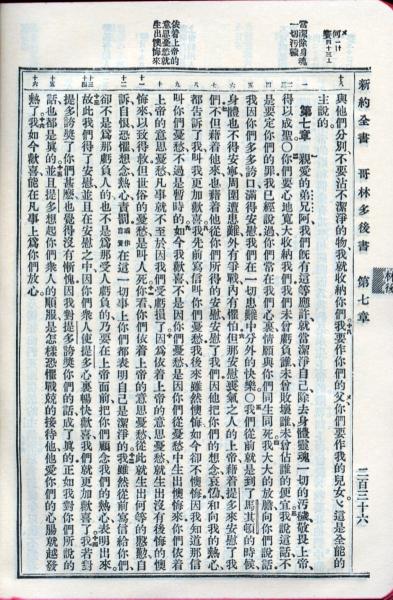 新約全書 哥林多後書 第七章 二百三十六
與他們分別不要沾不潔淨的物我就收納你們我要作你們的父你們要作我的兒女這是全能的
主說的。
當潔除身魂
一切污穢
第七章 親愛的弟兄阿我們旣有這等應許就當潔淨自己除去身體靈魂一切的污穢敬畏上帝
得以成聖○你們要心地寬大收納我們我們未曾虧負誰未曾敗壞誰未曾佔誰的便宜我說這話不
是要定你們的罪我已經說過你們常在我們心裏情願與你們同生同死我大大的放膽向你們說話
我因你們多多誇口滿得安慰我們在一切患難中分外的快樂○我們從前就是到了馬其頓的時候
身體也不得安寧周圍遭患難外有爭戰內有懼怕但那安慰喪氣之人的上帝藉着提多來安慰了我
們不但藉着他來也藉着他從你們所得的安慰安慰了我們因他把你們的想念哀慟和向我的熱心
都告訴了我叫我更加歡喜我先前寫信叫你們憂愁我後來雖然懊悔如今却不懊悔因我知道那信
叫你們憂愁不過是暫時的如今我歡喜不是因你們憂愁是因你們從憂愁中生出懊悔來你們依着
依着上帝的
意思憂愁就
生出懊悔來
上帝的意思憂愁凡事就不至於因我們受虧損了因爲依着上帝的意思憂愁就生出沒有後悔的懊
悔來以致得救但世俗的憂愁是叫人死你看你們依着上帝的意思憂愁從此就生出何等的慇懃自
訴自恨恐懼想念熱心責罰或作自責在這一切事上你們都表明自己是潔淨的我雖然從前寫信給你們
却不是爲那虧負人的也不是爲那受人虧負的乃要在上帝面前把你們顧念我們的熱心表明出來
故此我們得了安慰並且在安慰之中因你們衆人使提多心裏暢快歡喜我們就更加歡喜了我若對
提多誇獎了你們甚麼也覺得沒有慚愧因我對提多誇獎你們的話成了眞的正如我對你們所說的
話也都是眞的並且提多想起你們衆人的順服是怎樣恐懼戰兢的接待他他愛你們的心腸就越發
熱了我如今歡喜能在凡事上爲你們放心。